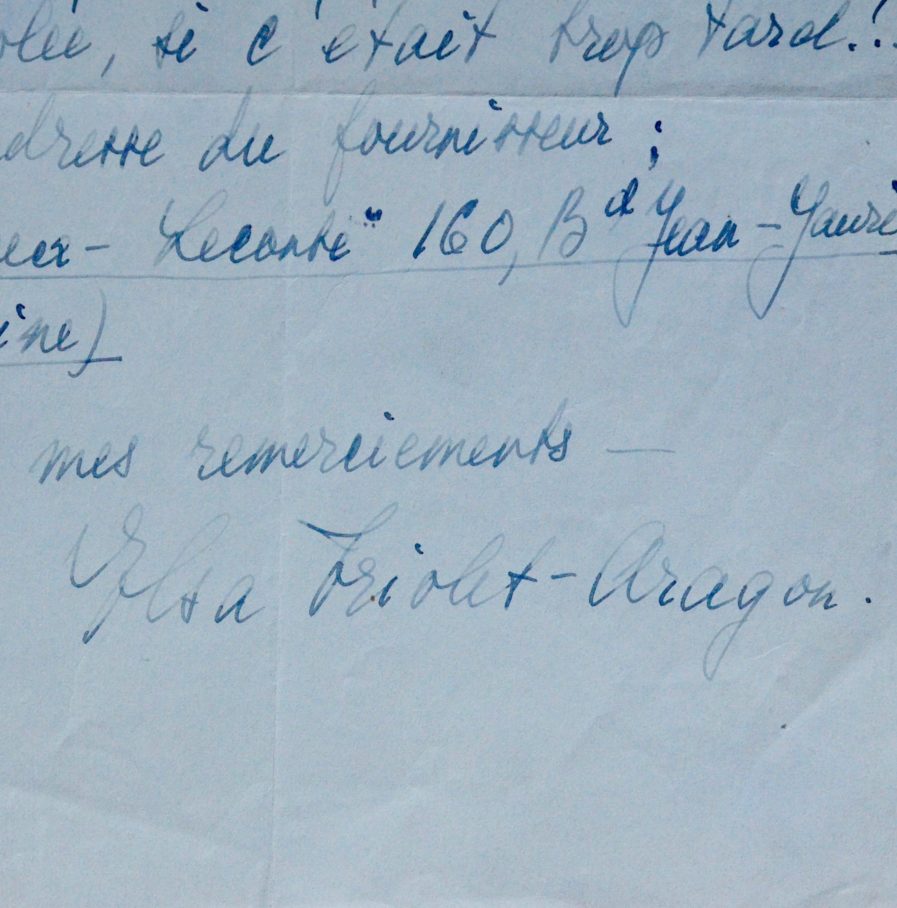 olée, si c'était trop tard!..
dresse du fournisseur ;
eux- Leconte" 160, Bd Jean-Jaurè
ine)
mes remerciements —
Elsa Triolet-Aragon.